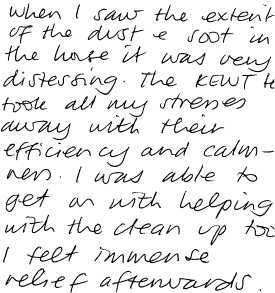 when I saw the extent
of the dust & soot in
the house it was very
distessing. The KEWT te
took all my stresses
away with their
efficiency and calm-
ness. I was able to
get on with helping
with the clean up too
I felt immense
relief afterwards.